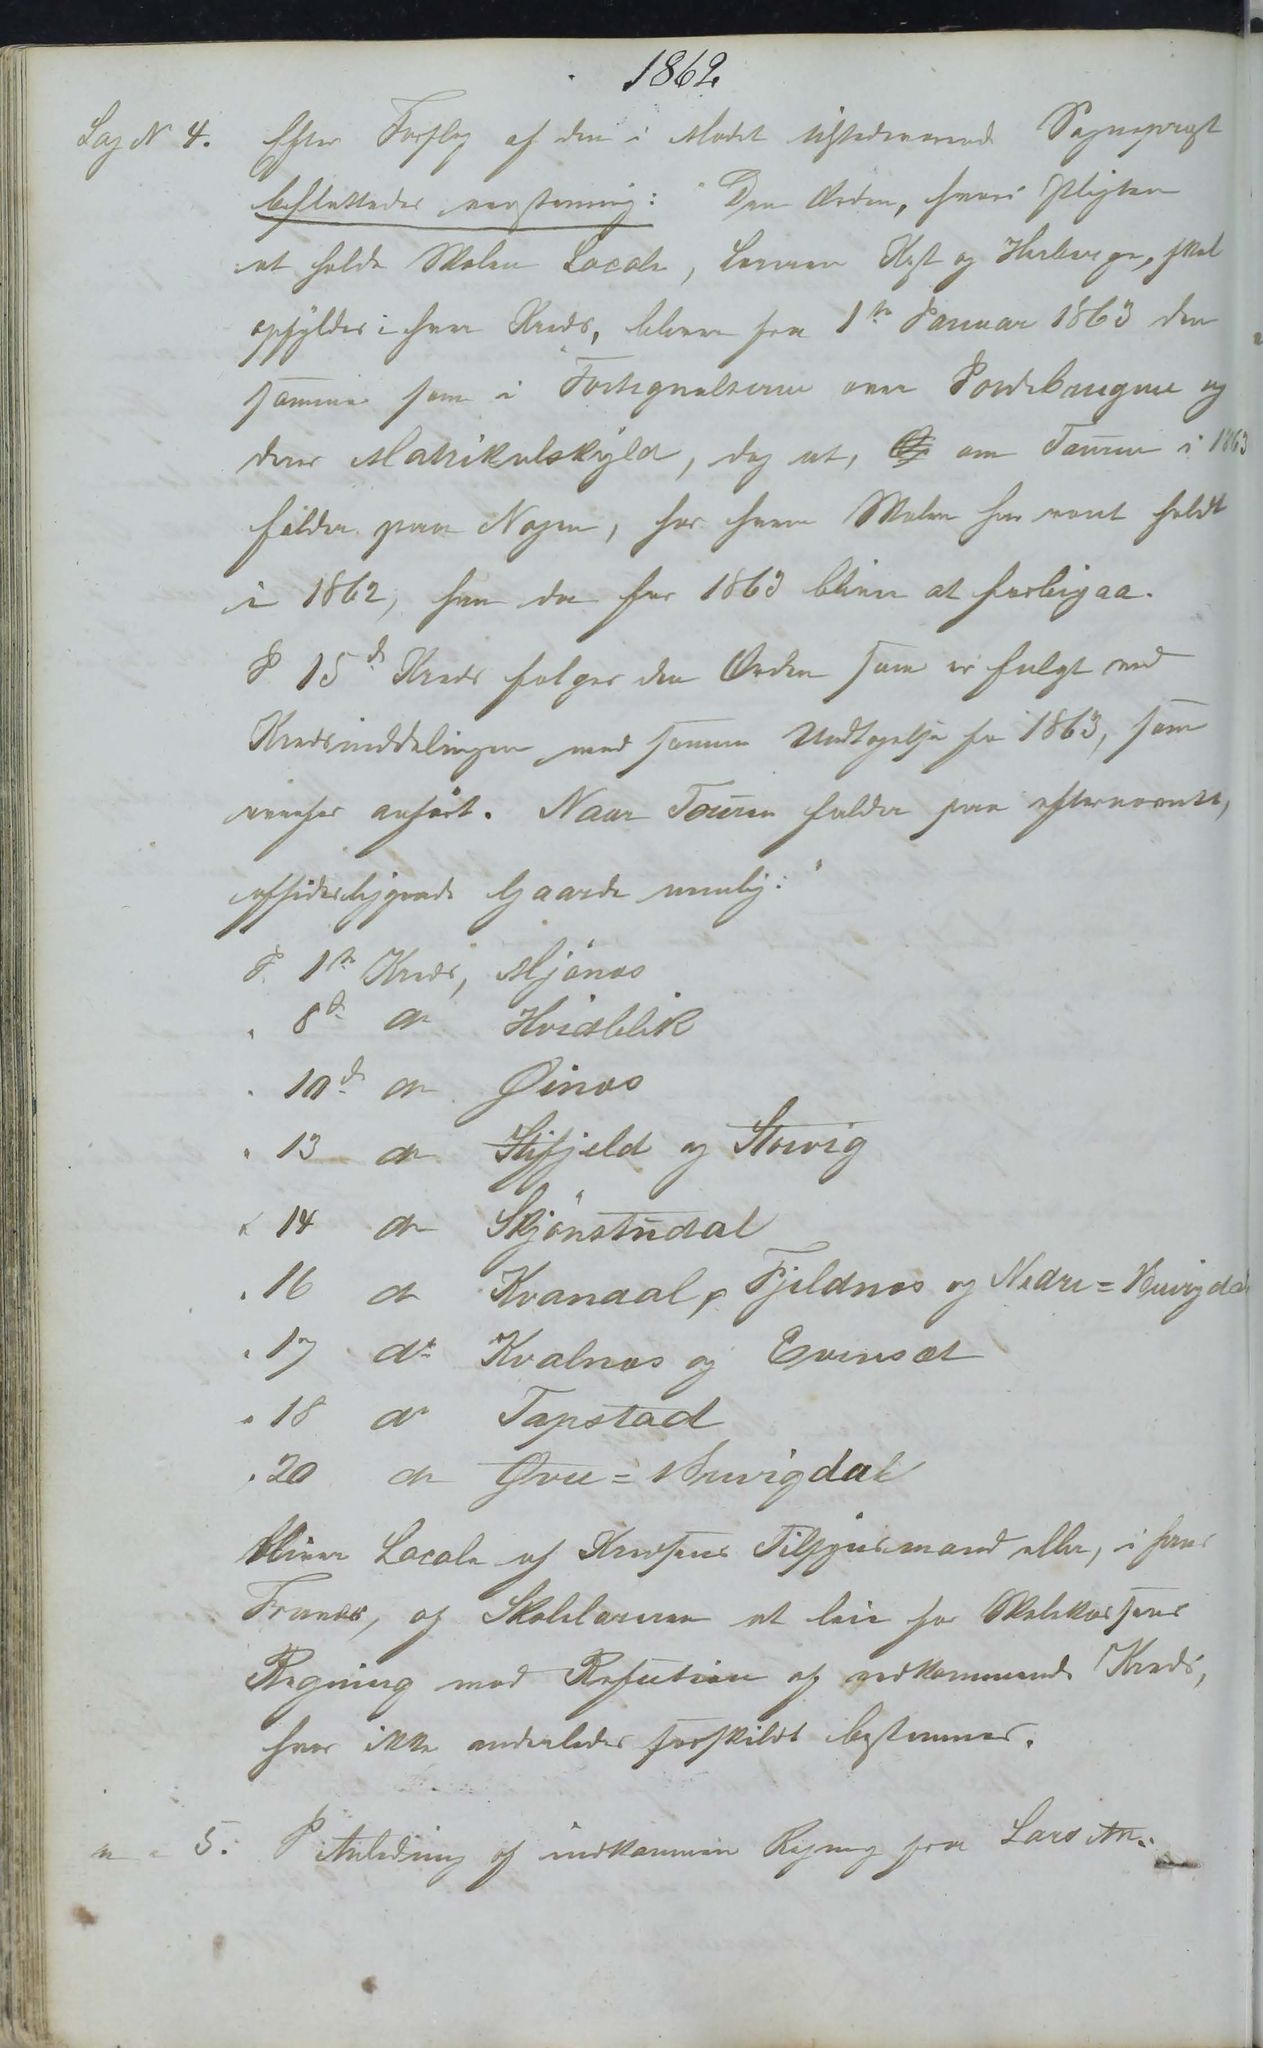 1862
Sag N 4. Efter Forslag af den i Mødet tilstedeværende Sognepræst
besluttedes eenstemmig: "Den Orden, hvori Pligten
at holde Skolen Locale, Læreren Kost og Herberge, skal
opfyldes i hver Kreds, bliver fra 1ste Januar 1863 den
samme som i Fortegnelserne over Jordebrugene og
deres Matrikulskyld, dog at, om Touren i 1863
falder paa Nogen, hos hvem Skolen har vært holdt
i 1862, han da for 1863 bliver at forbigaa.
I 15de Kreds følges den Orden som er fulgt ved
Kredsinddelingen med samme Undtagelse for 1863, som
ovenfor anført. Naar Touren falder paa efternævnte,
afsidesliggende Gaarde nemlig:"
I 1ste Kreds, Mjönæs
" 8de do Hvidblik
" 10de do Øinæs
" 13 do Stifjeld og Storvig
" 14 do Skjönstudal
" 16 do Kvanaal, Fjeldnæs og Nedre=
" 17 do Kvalnæs og Evensæt
" 18 do Tapstad
" 20 do Øvre=
bliver Locale af Kredsens Tilsynsmand eller, i hans
Fravær, af Skolelæreren at leie for Skolekassens
Regning mod Refusion af vedkommende Kreds,
hvor ikke anderledes særskildt bestemmes.
" " 5. I Anledning af indkommen Regning fra Lars An-